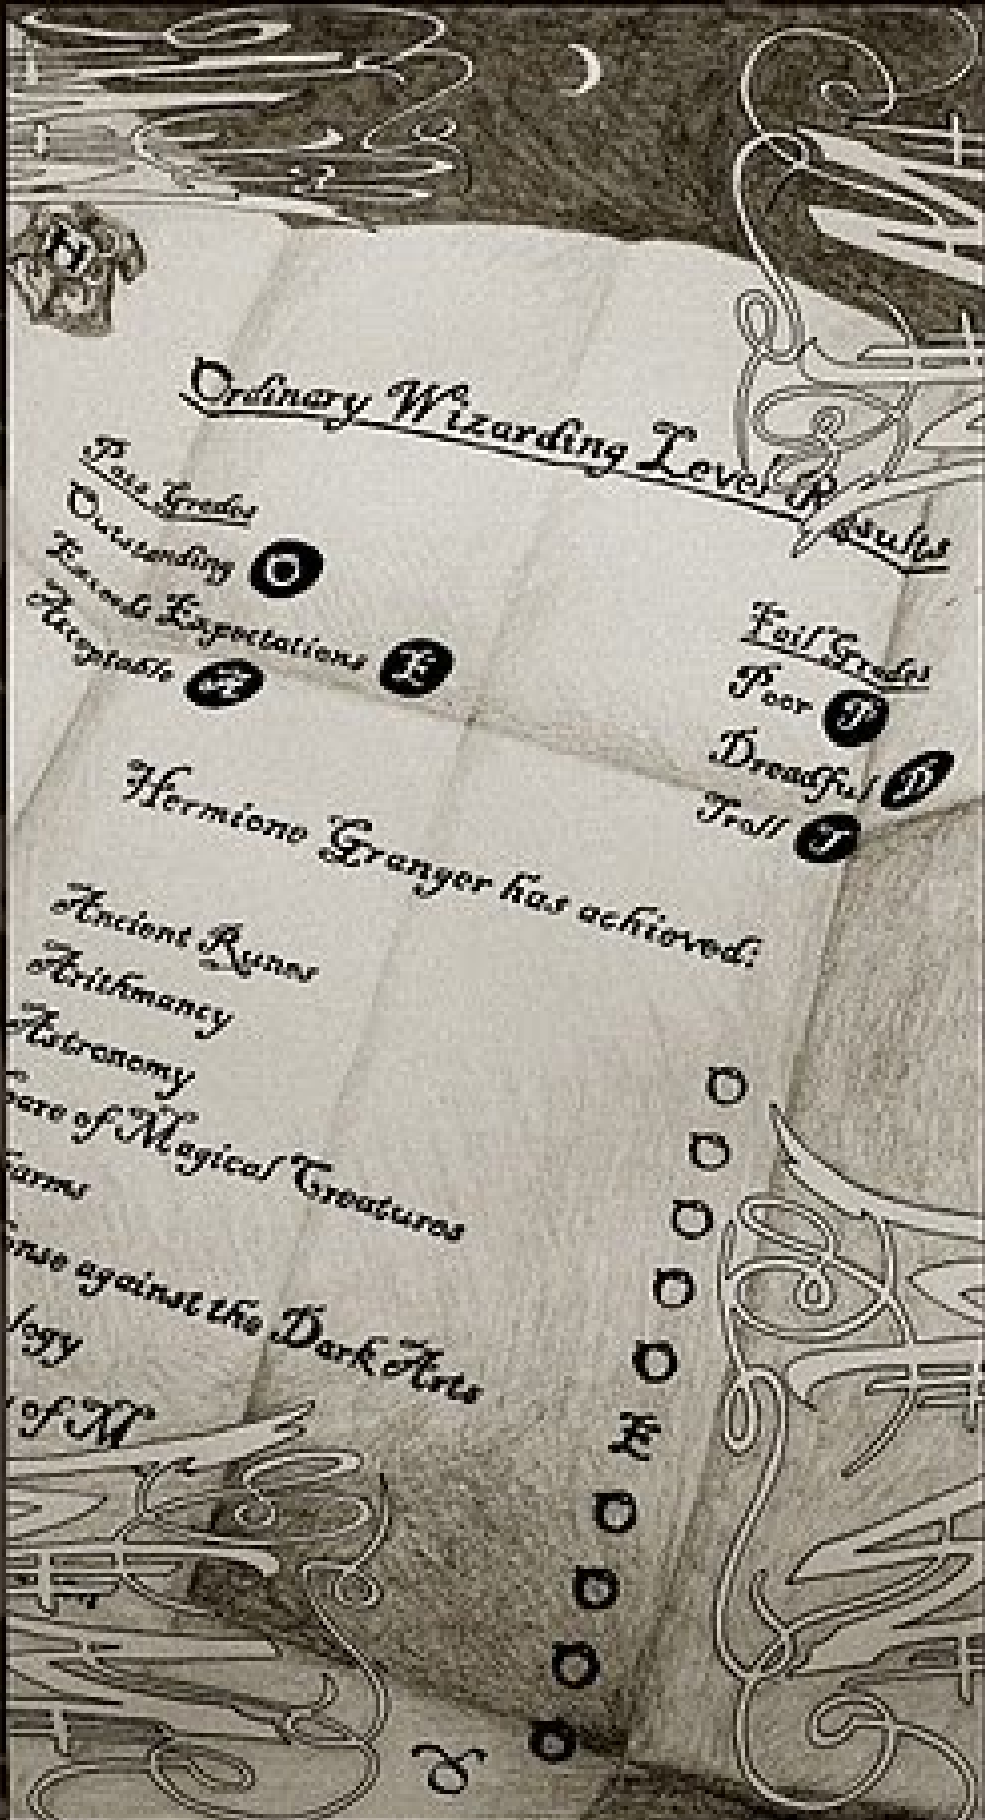 H
Ordinary Wizarding Level Results
Pass Grades
Outstanding O
Exceeds Expectations E
Acceptable A
Fail Grades
Poor P
Dreadful D
Troll T
Hermione Granger has achieved:
Ancient Runes O
Arithmancy O
Astronomy O
Care of Magical Creatures O
arms O
nse against the Dark Arts E
logy O
of M O
O
O